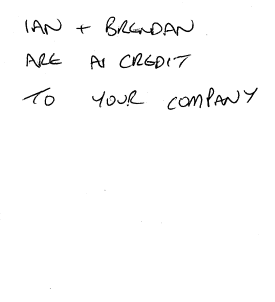 IAN + BRENDAN
ARE A CREDIT
TO YOUR COMPANY